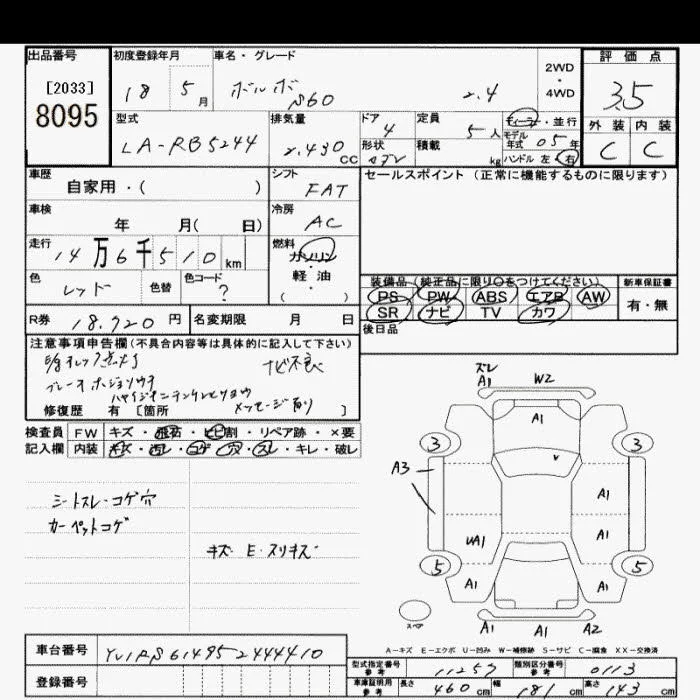 出品番号
[2033]
8095
初度登録年月
18 5 月
車名・グレード
ボルボ S60 2.4
2WD
・
4WD
評価点
3.5
型式
LA-RB5244
排気量
2.430 CC
ドア
4
形状
定員
5 人
積載
kg
ディーラー・並行
モデル年式 05 年
ハンドル 左・右
外装 内装
C C
車歴
自家用・( )
シフト
FAT
セールスポイント (正常に機能するものに限ります)
車検
年 月( 日)
冷房
AC
走行
14万6千510 km
燃料
ガソリン
・
軽油
( )
色
レッド
色替
色コード
?
装備品 (純正品に限り○をつけてください)
PS PW ABS エアB AW
SR ナビ TV カワ
新車保証書
有・無
R券 18.920 円
名変期限 月 日
後日品
注意事項申告欄(不具合内容等は具体的に記入して下さい)
ナビ不良
メッセージ有り
修復歴 有 [箇所 ]
検査員記入欄
FW キズ・飛石・ヒビ割・リペア跡・×要
内装 キズ・汚レ・コゲ・穴・スレ・キレ・破レ
シートスレ・コゲ穴
カーペットコゲ
キズ E・スリキズ
ズレ
A1 W2
A1
3 3
A3
A1
UA1 A1
5 5
A1 A1
スペア
A1 A2 A1
A-キズ E-エクボ U-凹み W-補修跡 S-サビ C-腐食 XX-交換済
車台番号 YV1RS614952444410
登録番号
型式指定番号 参考 11257
類別区分番号 参考 0113
車庫証明用 参考 長さ 460 cm 幅 181 cm 高さ 143 cm